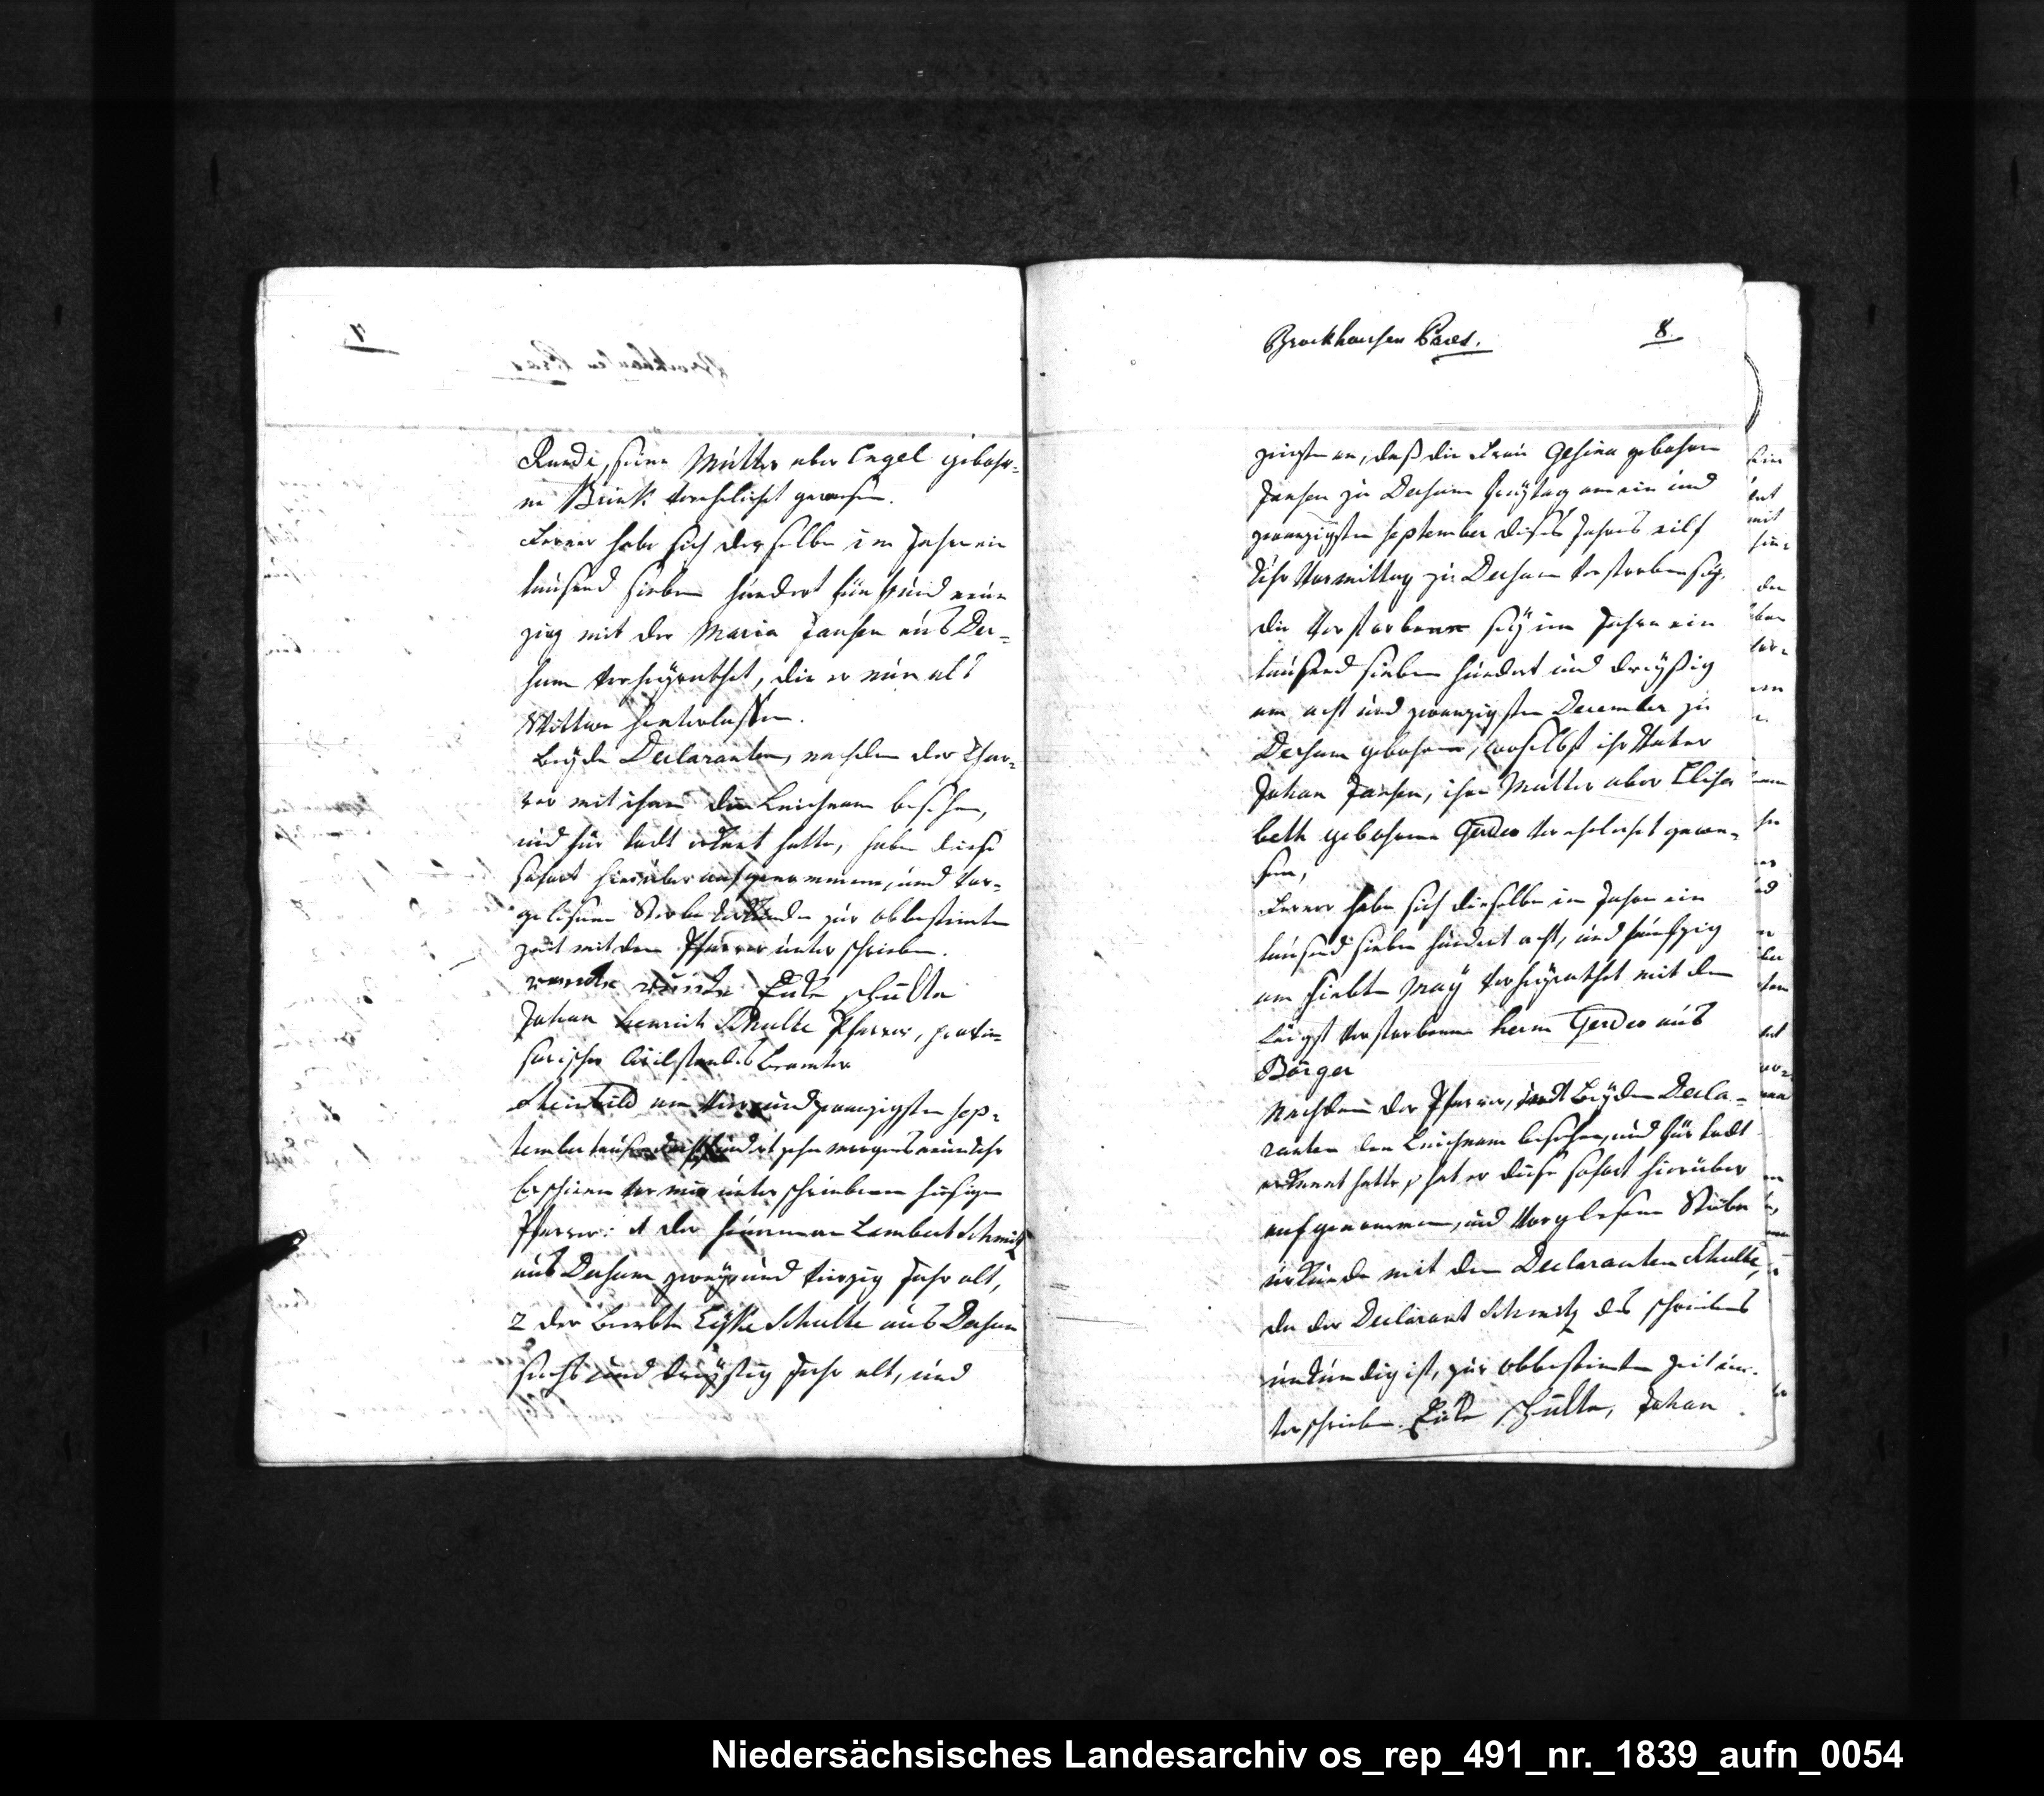 7
Rundi, seine Mutter aber Engel gebohr-
ne Brink verehelicht gewesen.
Ferner habe sich derselbe im Jahr ein
tausend sieben hundert fünf und neun
zig mit der Maria Jansen aus Der-
sum verheyrathet, die er nun als
Wittwe hinterlassen.
Beyde Declaranten, nachdem der Pfar-
rer mit ihnen den Leichnam besehen,
und für todt erkant hatte, haben diese
sofort hierüber aufgenommene, und vor-
gelesene Sterbe Urkunde zur obbestimten
Zeit mit dem Pfarrer unterschrieben.
Eüke schulte
Johan Henrich Schulte Pfarrer, provi-
sorischer Civilstandes Beamter
Steinbild am vier und zwanzigsten Sep-
tember tausend acht hundert zehn morgens neun Uhr
Erschienen vor mir unterschriebenen hiesigen
Pfarrer: 1 der Heuerman Lambert Schmitz
aus Dersum zwey und vierzig Jahr alt,
2 der Beerbte Eyke Schulte aus Dersum
sechs und dreyßig Jahr alt, und
Brockhausen Paes. 8.
zeigten an, daß die Frau Gesina gebohrne
Jansen zu Dersum Freytag am ein und
zwanzigsten September dieses Jahres eilf
Uhr Vormittag zu Dersum verstorben sey.
die Verstorbene sey im Jahre ein
tausend sieben hundert und dreyßig
am acht und zwanzigsten December zu
Dersum gebohren, woselbst ihr Vater
Johan Jansen, ihre Mutter aber Elisa
beth gebohrne Gerdes verehelicht gewe-
sen,
Ferner habe sich dieselbe im Jahre ein
tausend sieben hundert acht, und funfzig
am siebten May verheyrathet mit dem
längst verstorbenen Herm Gerdes aus
Börger
Nachdem der Pfarrer, und Beyden Decla-
ranten den Leichnam besehen, und für todt
erkennt hatte, hat er diese sofort hierüber
aufgenommene, und vorgelesene Sterbe
urkunde mit dem Declaranten Schulte,
da der Declarant Schmitz des schreibens
unkundig ist, zur obbestimten Zeit un-
terschrieben. Eüke schulte, Johan
Niedersächsisches Landesarchiv os_rep_491_nr._1839_aufn_0054